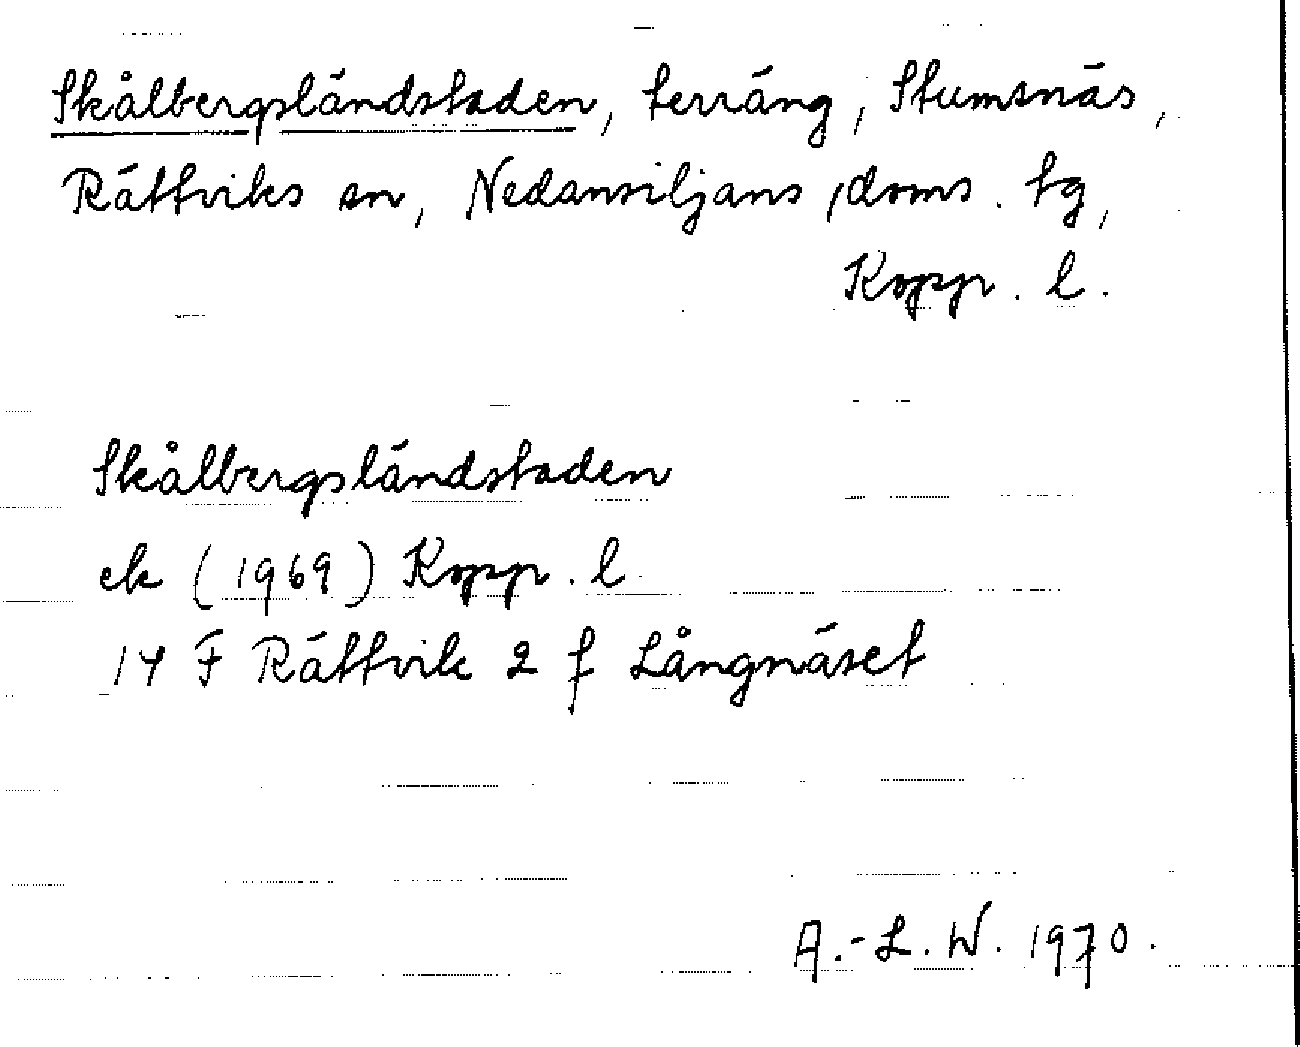 Skålbergsländstaden, terräng, Stumsnäs,
Rättviks sn, Nedansiljans doms. tg,
Kopp. l.
Skålbergsländstaden
ek (1969) Kopp. l.
14 F Rättvik 2 f Långnäset
A.-L. W. 1970.